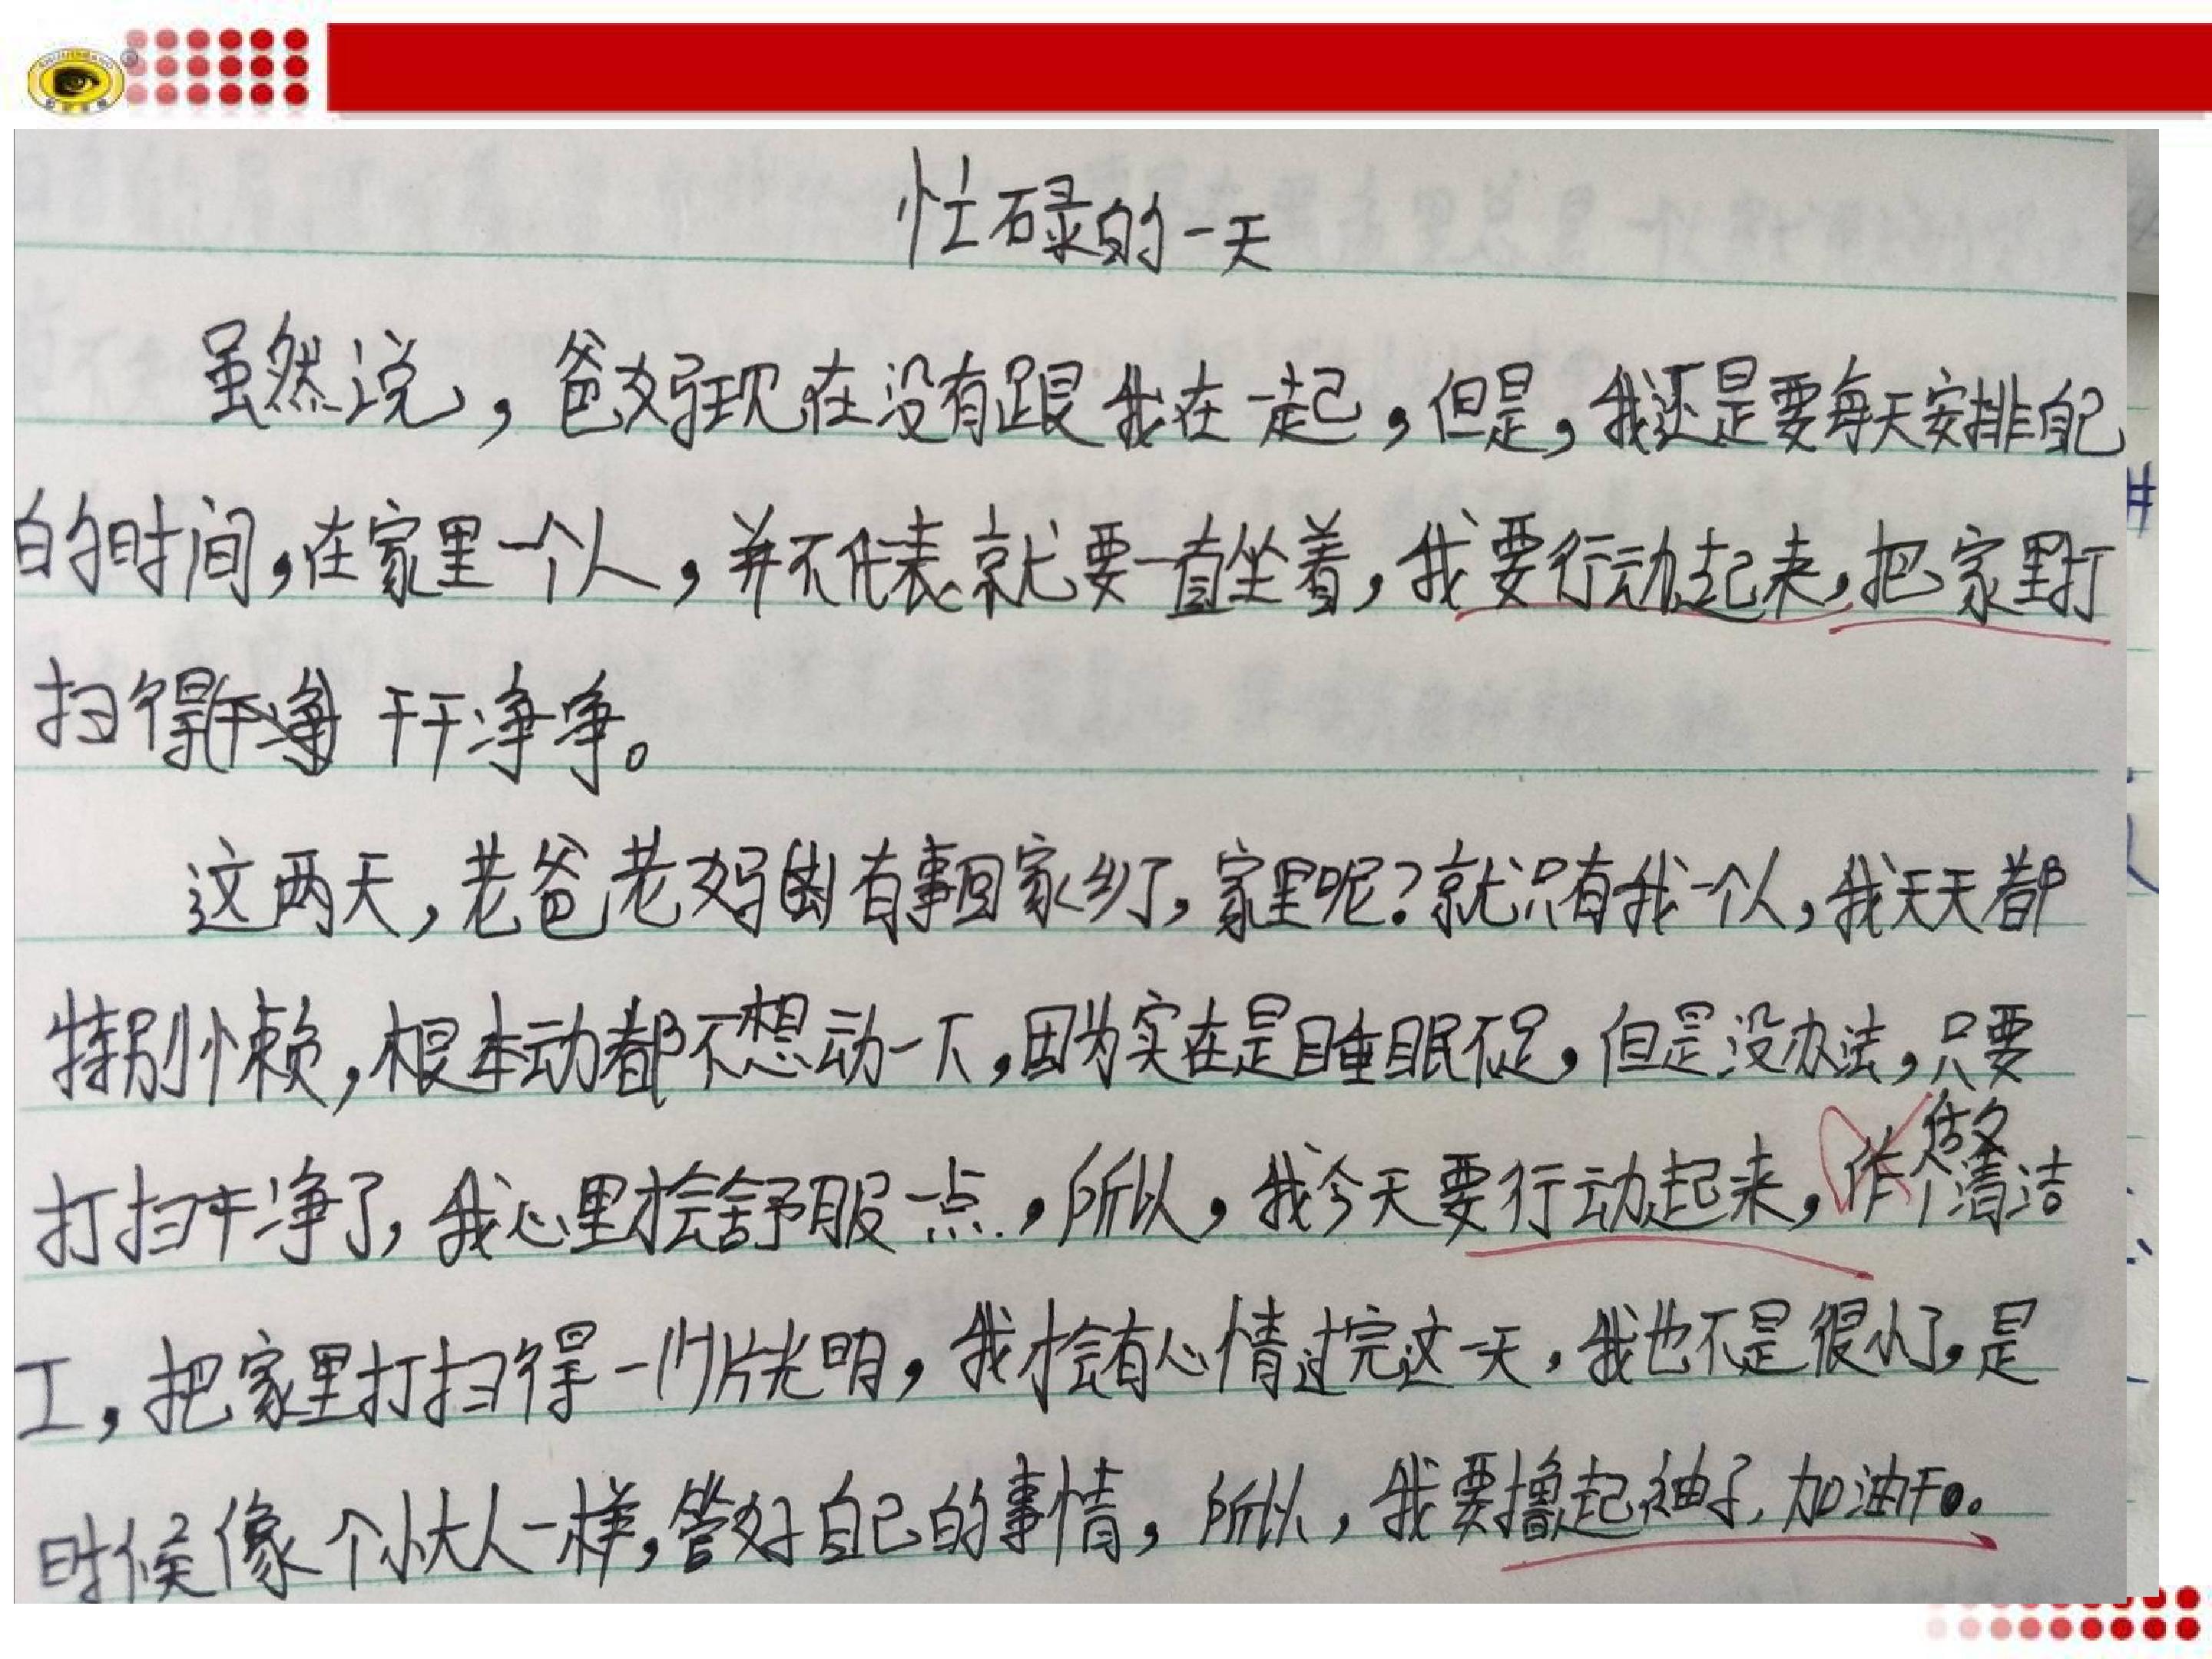 忙碌的一天
虽然说，爸妈现在没有跟我在一起，但是，我还是要每天安排自己
的时间，在家里一个人，并不代表就要一直坐着，我要行动起来，把家里打
扫得干干净净。
这两天，老爸老妈有事回家乡了，家里呢？就只有我一个人，我天天都
特别懒，根本动都不想动一下，因为实在是睡眠不足，但是没办法，只要
打扫干净了，我心里才会舒服一点，所以，我今天要行动起来，做个清洁
工，把家里打扫得一片光明，我才会有心情过完这一天，我也不是很小了，是
时候像个小大人一样，管好自己的事情，所以，我要撸起袖子，加油干。